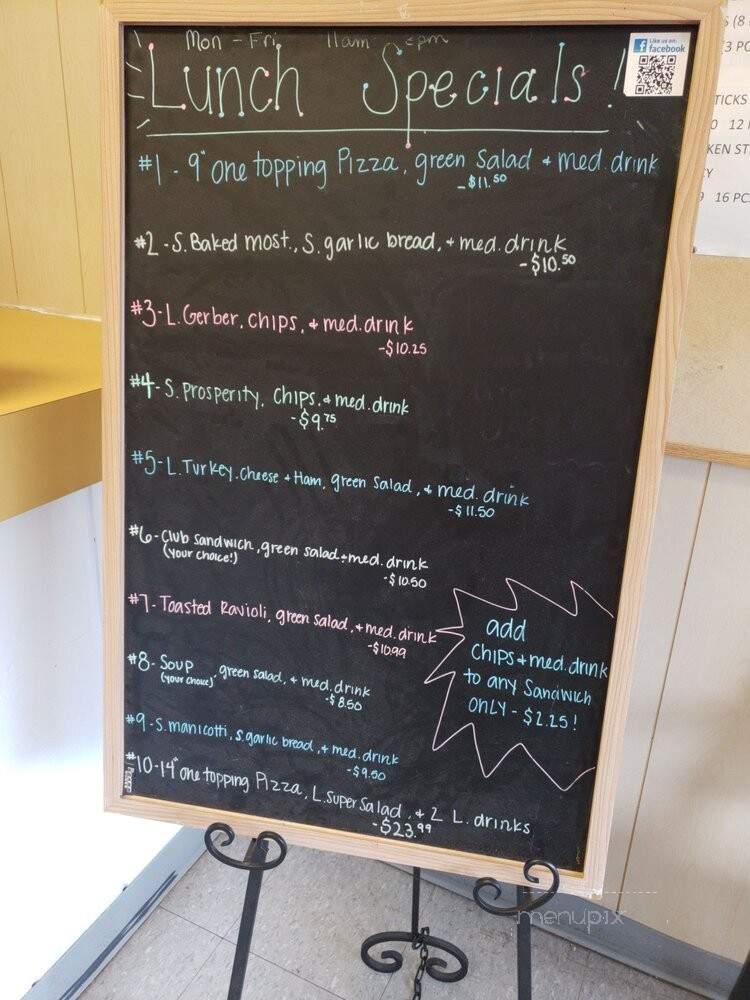 Mon - Fri 11am pm
Lunch Specials!
Like us on
facebook
#1 - 9" one topping Pizza, green salad + med. drink
- $11.50
#2 - S. Baked most., S. garlic bread, + med. drink
- $10.50
#3 - L. Gerber, chips, + med. drink
- $10.25
#4 - S. Prosperity, chips, + med. drink
- $9.75
#5 - L. Turkey, cheese + Ham, green salad, + med. drink
- $11.50
#6 - Club sandwich, green salad + med. drink
(your choice!)
- $10.50
#7 - Toasted Ravioli, green salad, + med. drink
- $10.99
#8 - Soup, green salad, + med. drink
(your choice)
- $8.50
#9 - S. manicotti, s. garlic bread, + med. drink
- $9.50
#10 - 14" one topping Pizza, L. super salad, + 2 L. drinks
- $23.99
add
chips + med. drink
to any Sandwich
ONLY - $2.25!
(8
3 PC
TICKS
0 12
KEN ST
CY
9 16 PC
menupix